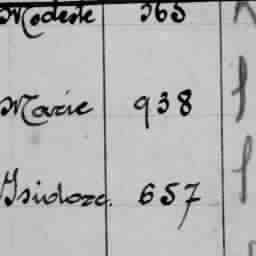 Modeste 365
Marie 938
Isidore. 657